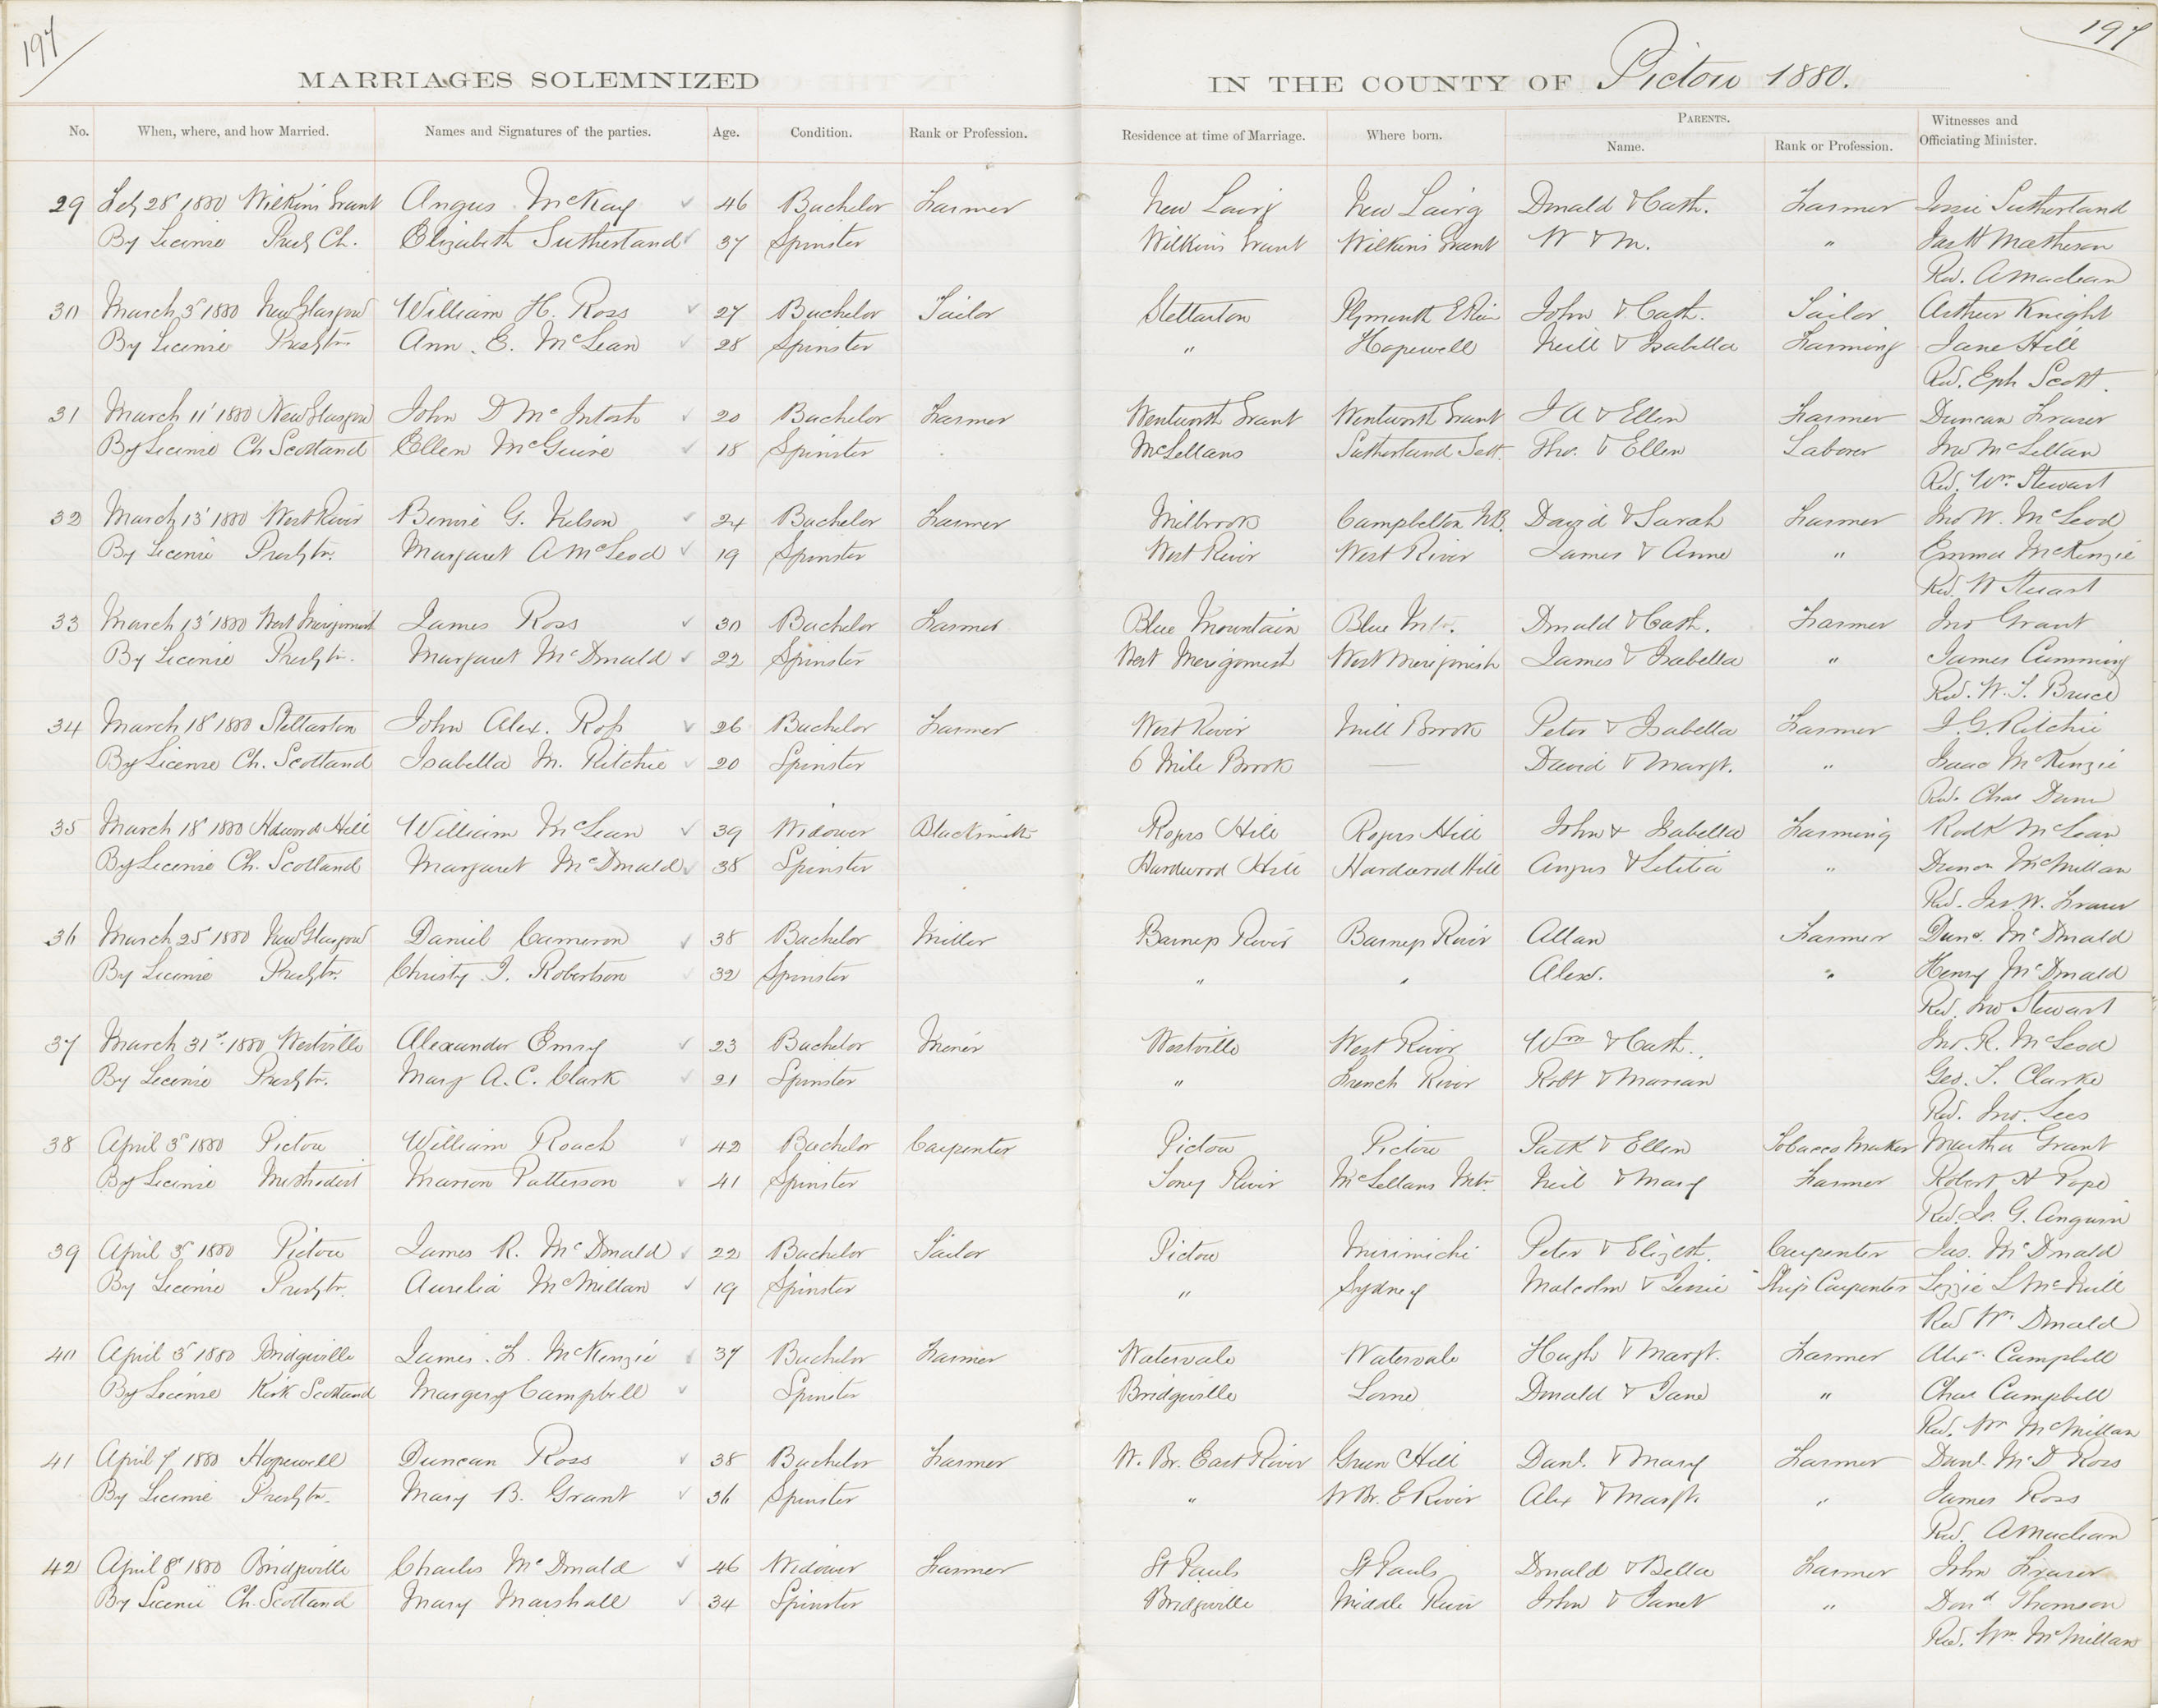 197 197
MARRIAGES SOLEMNIZED IN THE COUNTY OF Pictou 1880.
No. When, where, and how Married. Names and Signatures of the parties. Age. Condition. Rank or Profession. Residence at time of Marriage. Where born. PARENTS. Name. Rank or Profession. Witnesses and Officiating Minister.
29 Feby 28 1880 Wilkins Grant Angus McKay 46 Bachelor Farmer New Lairg New Lairg Donald & Cath. Farmer Jessie Sutherland
By License Presby Ch. Elizabeth Sutherland 37 Spinster Wilkins Grant Wilkins Grant W & M. " Matheson
Rev. A Maclean
30 March 3 1880 New Glasgow William H. Ross 27 Bachelor Tailor Stellarton Plymouth E River John & Cath. Tailor Arthur Knight
By License Presbytn Ann. E. McLean 28 Spinster " Hopewell Neill & Isabella Farming Jane Hill
Rev. Eph Scott.
31 March 11 1880 New Glasgow John D McIntosh 20 Bachelor Farmer Wentworth Grant Wentworth Grant J A & Ellen Farmer Duncan Fraser
By License Ch Scotland Ellen McGuire 18 Spinster McLellans Sutherland Sett. Tho. & Ellen Laborer Jno McLellan
Rev. Wm. Stewart
32 March 13 1880 West River G. Nelson 24 Bachelor Farmer Milbrook Campbelton N.B. David & Sarah Farmer Jno W. McLeod
By License Presbytn. Margaret A McLeod 19 Spinster West River West River James & Anne " Emma McKenzie
Rev. W Stuart
33 March 13 1880 West Merigomish James Ross 30 Bachelor Farmer Blue Mountain Blue Mtn. Donald & Cath. Farmer Jno Grant
By License Presbytn. Margaret McDonald 22 Spinster West Merigomish West Merigomish James & Isabella " James Cumming
Rev. W. T. Bruce
34 March 18 1880 Stellarton John Alex. Ross 26 Bachelor Farmer West River Mill Brook Peter & Isabella Farmer J. G. Ritchie
By License Ch. Scotland Isabella M. Ritchie 20 Spinster 6 Mile Brook — David & Margt. " Isaac McKenzie
Rev. Chas Dunn
35 March 18 1880 Hdwood Hill William McLean 39 Widower Blacksmith Rogers Hill Rogers Hill John & Isabella Farming Rodk McLean
By License Ch. Scotland Margaret McDonald 38 Spinster Hardwood Hill Hardwood Hill Angus & Letitia " McMillan
Rev. Jas W. Fraser
36 March 25 1880 New Glasgow Daniel Cameron 38 Bachelor Miller Barneys River Barneys River Allan Farmer McDonald
By License Presbytn. Christy J. Robertson 32 Spinster " " Alexr. " Henry McDonald
Rev. Jno Stewart
37 March 31st 1880 Westville Alexander Emry 23 Bachelor Miner Westville West River Wm & Cath. Jno. R. McLeod
By License Presbytn. Mary A. C. Clark 21 Spinster " French River Robt & Marian Geo. T. Clarke
Rev. Jno. Lees
38 April 3 1880 Pictou William Roach 42 Bachelor Carpenter Pictou Pictou Patk & Ellen Tobacco Maker Martha Grant
By License Methodist Marion Patterson 41 Spinster Toney River McLellans Mtn. Neil & Mary Farmer Robert H Pope
Rev. Js. G. Angwin
39 April 3 1880 Pictou James R. McDonald 22 Bachelor Tailor Pictou Mirimichi Peter & Elizbth. Carpenter Jas. McDonald
By License Presbytn. Aurelia McMillan 19 Spinster " Sydney Malcolm & Jessie Ship Carpenter Lizzie L McNeill
Rev Wm Donald
40 April 3 1880 Bridgeville James. F. McKenzie 37 Bachelor Farmer Watervale Watervale Hugh & Margt. Farmer Alexr. Campbell
By License Kirk Scotland Margery Campbell Spinster Bridgeville Lorne Donald & Jane " Chas Campbell
Rev. Wm McMillan
41 April 7 1880 Hopewell Duncan Ross 38 Bachelor Farmer W. Br. East River Green Hill Danl. & Mary Farmer Danl McD Ross
By License Presbytn. Mary B. Grant 36 Spinster " W Br. E River Alex & Margt. " James Ross
Rev. A Maclean
42 April 8 1880 Bridgeville Charles McDonald 46 Widower Farmer St Pauls St Pauls Donald & Bella Farmer John Fraser
By License Ch. Scotland Mary Marshall 34 Spinster Bridgeville Middle River John & Janet " Dond Thomson
Rev. Wm. McMillan